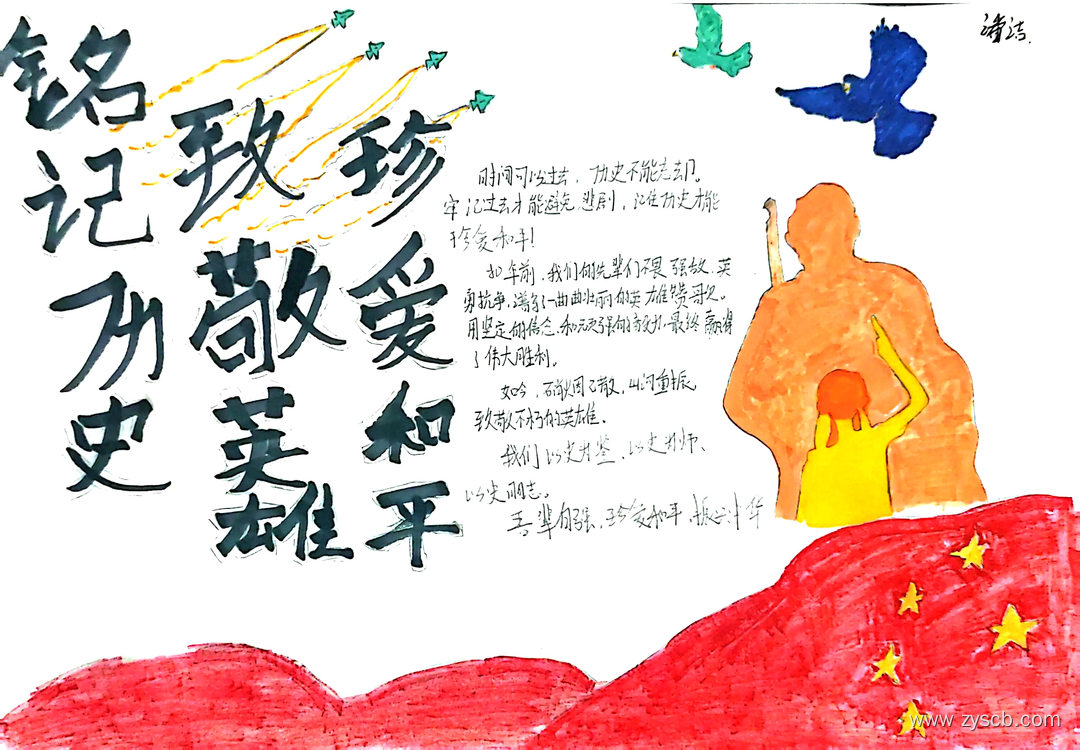 铭记历史
致敬英雄
珍爱和平
潘洁.
时间可以过去，历史不能忘却。
牢记过去才能避免悲剧，记住历史才能
珍爱和平！
80年前，我们的先辈们不畏强敌、英
勇抗争，谱写了一曲曲壮丽的英雄赞歌。
用坚定的信念和顽强的毅力，最终赢得
了伟大胜利。
如今，硝烟已散，山河重振，
致敬不朽的英雄。
我们以史为鉴、以史为师、
以史明志。
吾辈自强，珍爱和平，振兴中华
www.zyscb.com